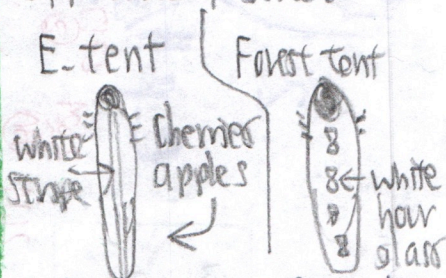 E-tent
white
stripe
Cherries
apples
Forest tent
white
hour
glass